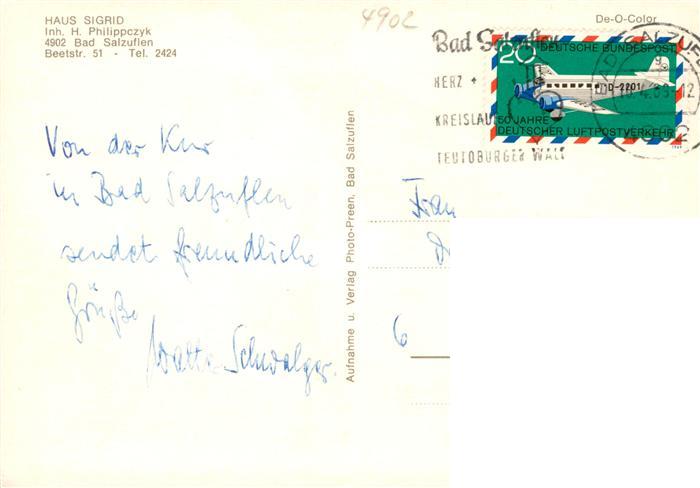 HAUS SIGRID
Inh. H. Philippczyk
4902 Bad Salzuflen
Beetstr. 51 - Tel. 2424
4902
De-O-Color
Bad Salzuflen
HERZ +
KREISLAUF
TEUTOBURGER WALD
20 DEUTSCHE BUNDESPOST
D-2201
50 JAHRE
DEUTSCHER LUFTPOSTVERKEHR
1969
Von der Kur
in Bad Salzuflen
sendet freundliche
Grüße
Schwalger
Aufnahme u. Verlag Photo-Preen, Bad Salzuflen
Frau
6